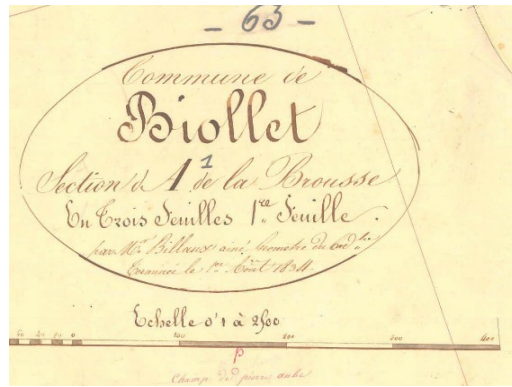 - 63 -
Commune de
Biollet
Section d. A 1 de la Brousse
En Trois Feuilles 1re Feuille.
par Mr. Billaux ainé, Géomètre du
Terminée le 1er Août 1834.
Echelle d'1 à 2500
100 200 300 400
p
Champ de pierre aube